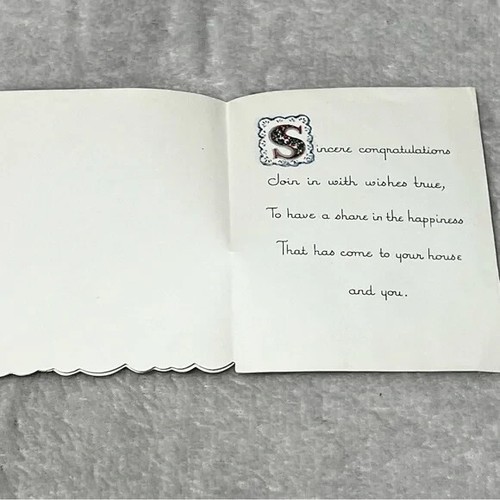 Sincere congratulations
Join in with wishes true,
To have a share in the happiness
That has come to your house
and you.